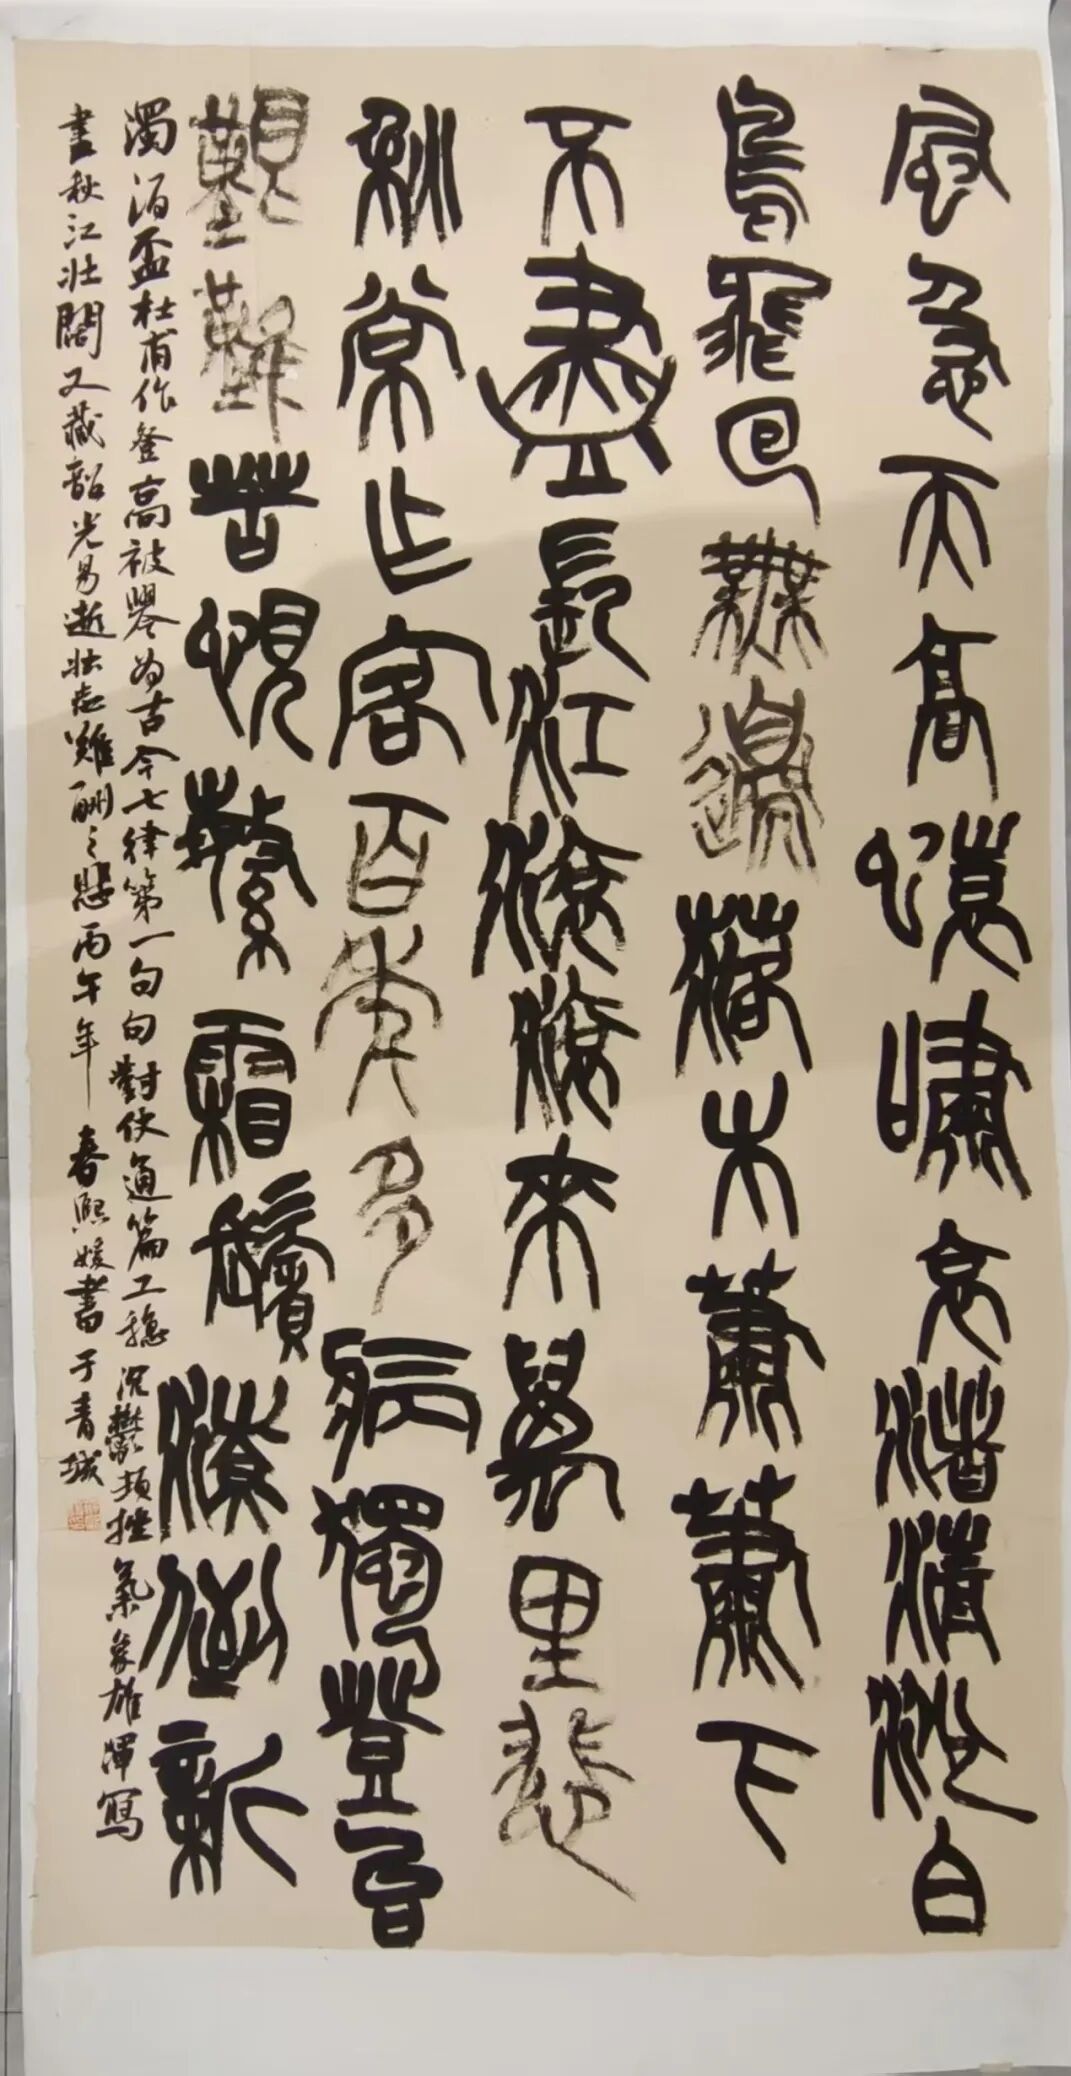 風急天高猨嘯哀渚清沙白
鳥飛回無邊落木蕭蕭下
不盡長江滾滾來萬里悲
秋常作客百年多病獨登臺
艱難苦恨繁霜鬢潦倒新
濁酒盃杜甫作登高被譽为古今七律第一句句對仗通篇工穩沉鬱頓挫氣象雄渾寫
盡秋江壯闊又藏韶光易逝壯志難酬之悲丙午年 春熙媛書于青城